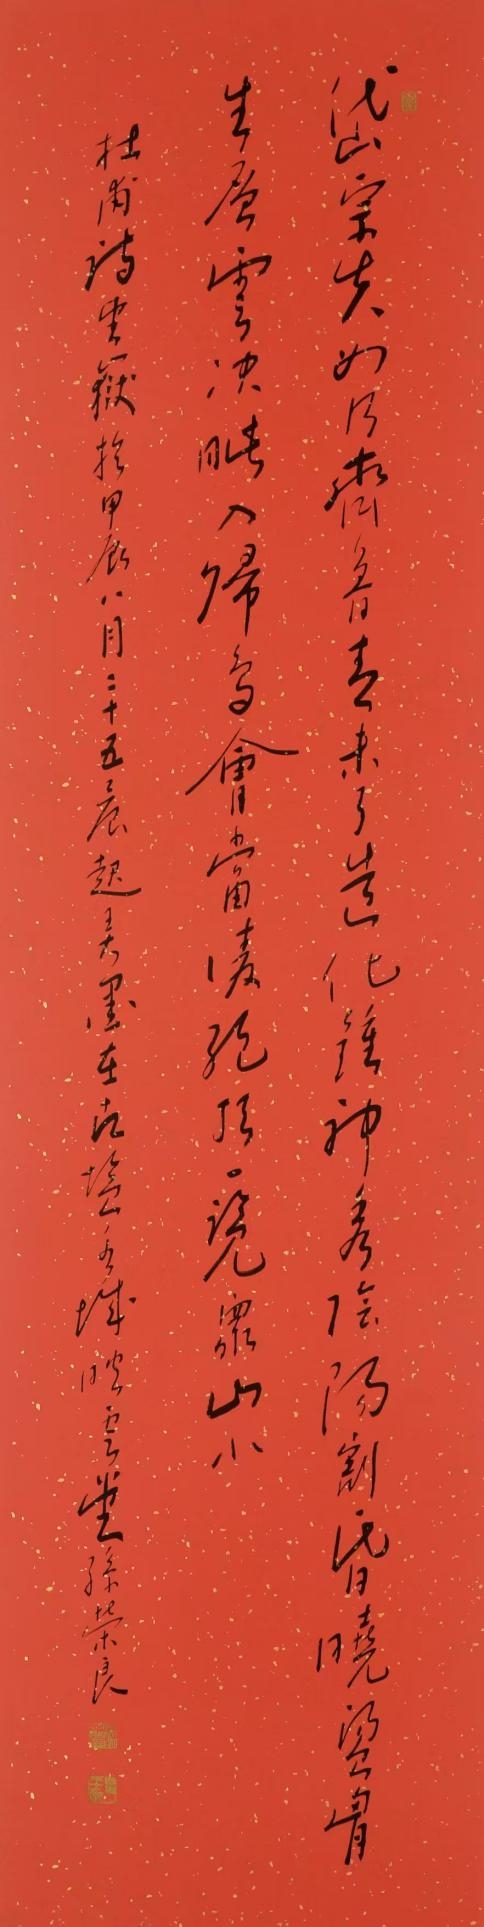 岱宗夫如何齊魯青未了造化鍾神秀陰陽割昏曉盪胷
生層雲決眥入歸鳥會當凌絕頂一覽眾山小
杜甫詩望嶽於甲辰八月二十五晨起墨在古城映雲堂孫榮良